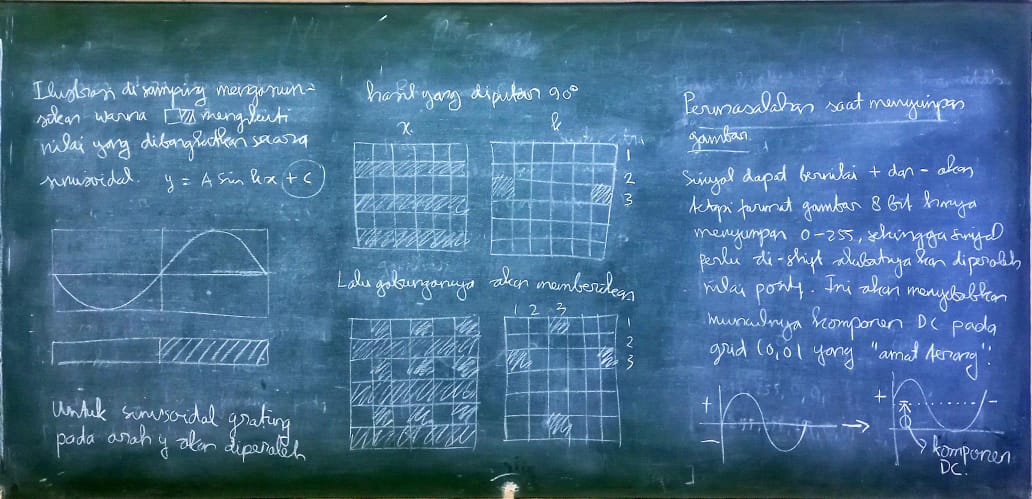 Ilustrasi disamping mengasum-
sikan warna mengikuti
nilai yang dibangkitkan secara
sinusoidal. y = A sin kx + C
Untuk sinusoidal grating
pada arah y akan diperoleh
hasil yang diputar 90°
x
k
1
2
3
Lalu gabungannya akan memberikan
1 2 3
1
2
3
Permasalahan saat menyimpan
gambar.
Sinyal dapat bernilai + dan - akan
tetapi format gambar 8 bit hanya
menyimpan 0-255, sehingga sinyal
perlu di-shift akibatnya kan diperoleh
nilai posty. Ini akan menyebabkan
munculnya komponen DC pada
grid (0,0) yang "amat terang".
+
-
+
-
komponen
DC.